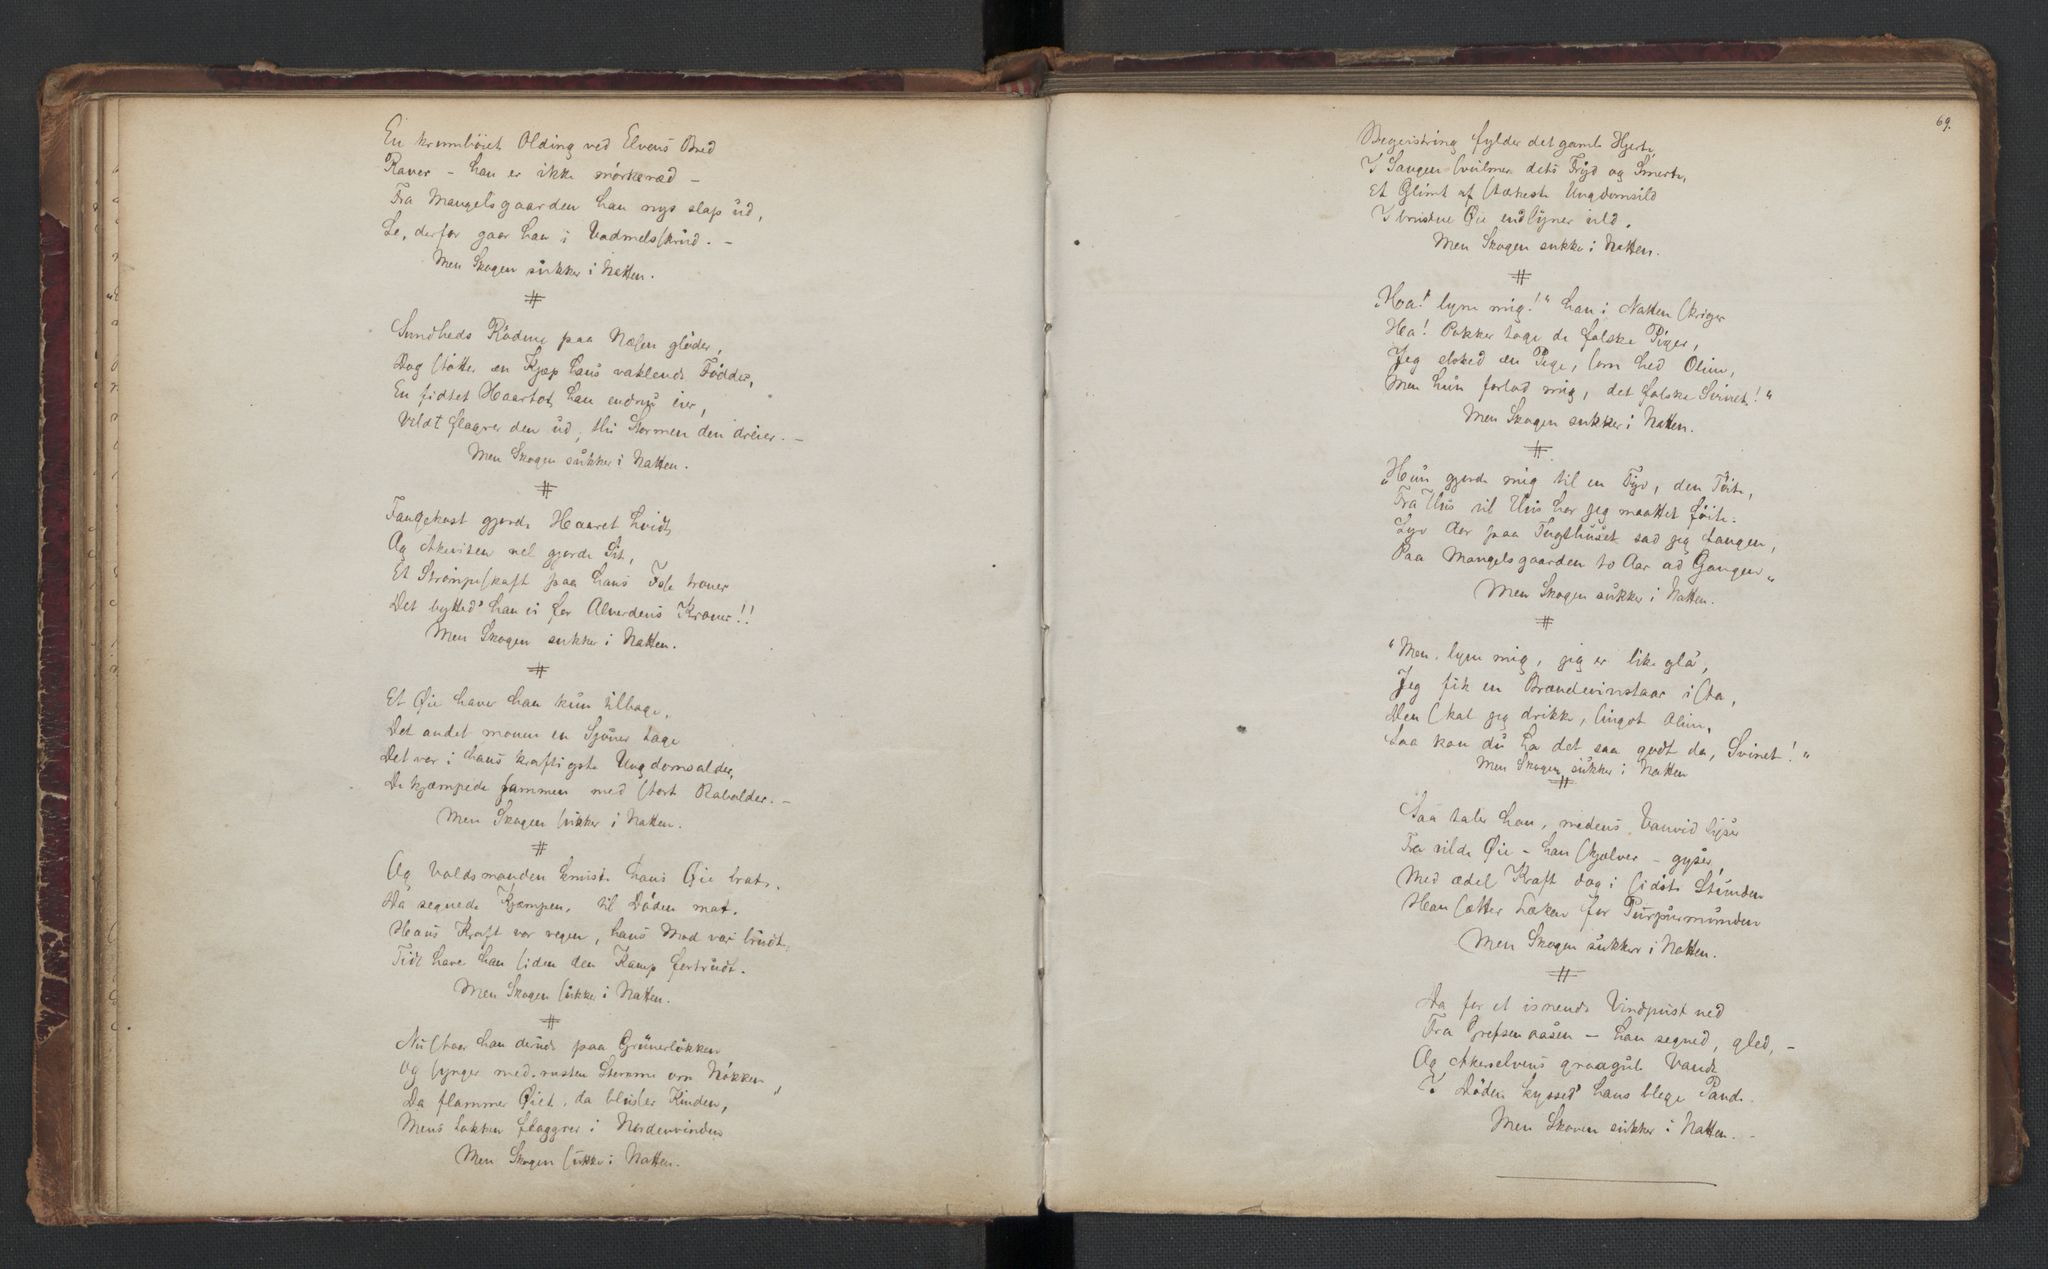 En krumbøiet Olding ved Elvens Bred
Raver – han er ikke mørkeræd –
Fra Mangelsgaarden han nys slap ud,
Se, derfor gaar han i Vadmelsskrud. –
Men Skogen sukker i Natten.
#
Sundheds Rødme paa Næsen gløder,
Dog støtter en Kjæp hans vaklende Fødder,
En fidtet Haartot han endnu eier,
Vildt flagrer den ud, thi Stormen den dreier. –
Men Skogen sukker i Natten.
#
Fangekost gjorde Haaret hvidt,
Og Akeviten vel gjorde Sit,
Et Strømpeskaft paa hans Isse troner
Det bytted' han ei for Alverdens Kroner!!
Men Skogen sukker i Natten.
#
Et Øie haver han kun tilbage,
Det andet monne en Sjouer tage
Det var i hans kraftigste Ungdomsalder,
De kjæmpede sammen med stort Rabalder. –
Men Skogen sukker i Natten.
#
Og Voldsmanden knuste hans Øie brat,
Da segnede Kjæmpen, til Døden mat.
Hans Kraft var vegen, hans Mod var brudt,
Tidt have han siden den Kamp fortrudt.
Men Skogen sukker i Natten.
#
Nu staar han derude paa Grünerløkken
Og synger med rusten Stemme om Nøkken,
Da flammer Øiet, da blusser Kinden,
Mens Lokken flaggrer i Nordenvinden
Men Skogen sukker i Natten.
69.
Begeistring fylder det gamle Hjerte,
I Sangen svulmer dets Fryd og Smerte,
Et Glimt af stækest Ungdomsild
I brustne Øie endlyner vild.
Men Skogen sukker i Natten.
#
„Hoa! lyne mig!" han i Natten skriger
Ha! Pokker tage de falske Piger,
Jeg elsked en Pige, som hed Oline,
Men hun forlod mig, det falske Svinet!"
Men Skogen sukker i Natten.
#
„Hun gjorde mig til en Tyv, den Tøite,
Fra Hus til Hus har jeg maattet føite.
Syv Aar paa Tugthuset sad jeg fangen,
Paa Mangelsgaarden to Aar ad Gangen„
Men Skogen sukker i Natten.
#
"Men, lyne mig, jeg er like gla',
Jeg fik en Brændevinstaar ista,
Den skal jeg drikke, singot Oline,
Saa kan du ha det saa godt da, Svinet!"
Men Skogen sukker i Natten
#
Saa taler han, medens Vanvid lyser
Fra vilde Øie – han skjælver – gyser,
Med ædel Kraft dog i sidste Stunden
Han sætter Lærken for Purpurmunden
Men Skogen sukker i Natten.
#
Da for et isnende Vindpust ned
Fra Grefsenaasen – han segned, gled, –
Og Akerselvens graagule Vande
I Døden kyssed' hans blege Pande.
Men Skoven sukker i Natten. –